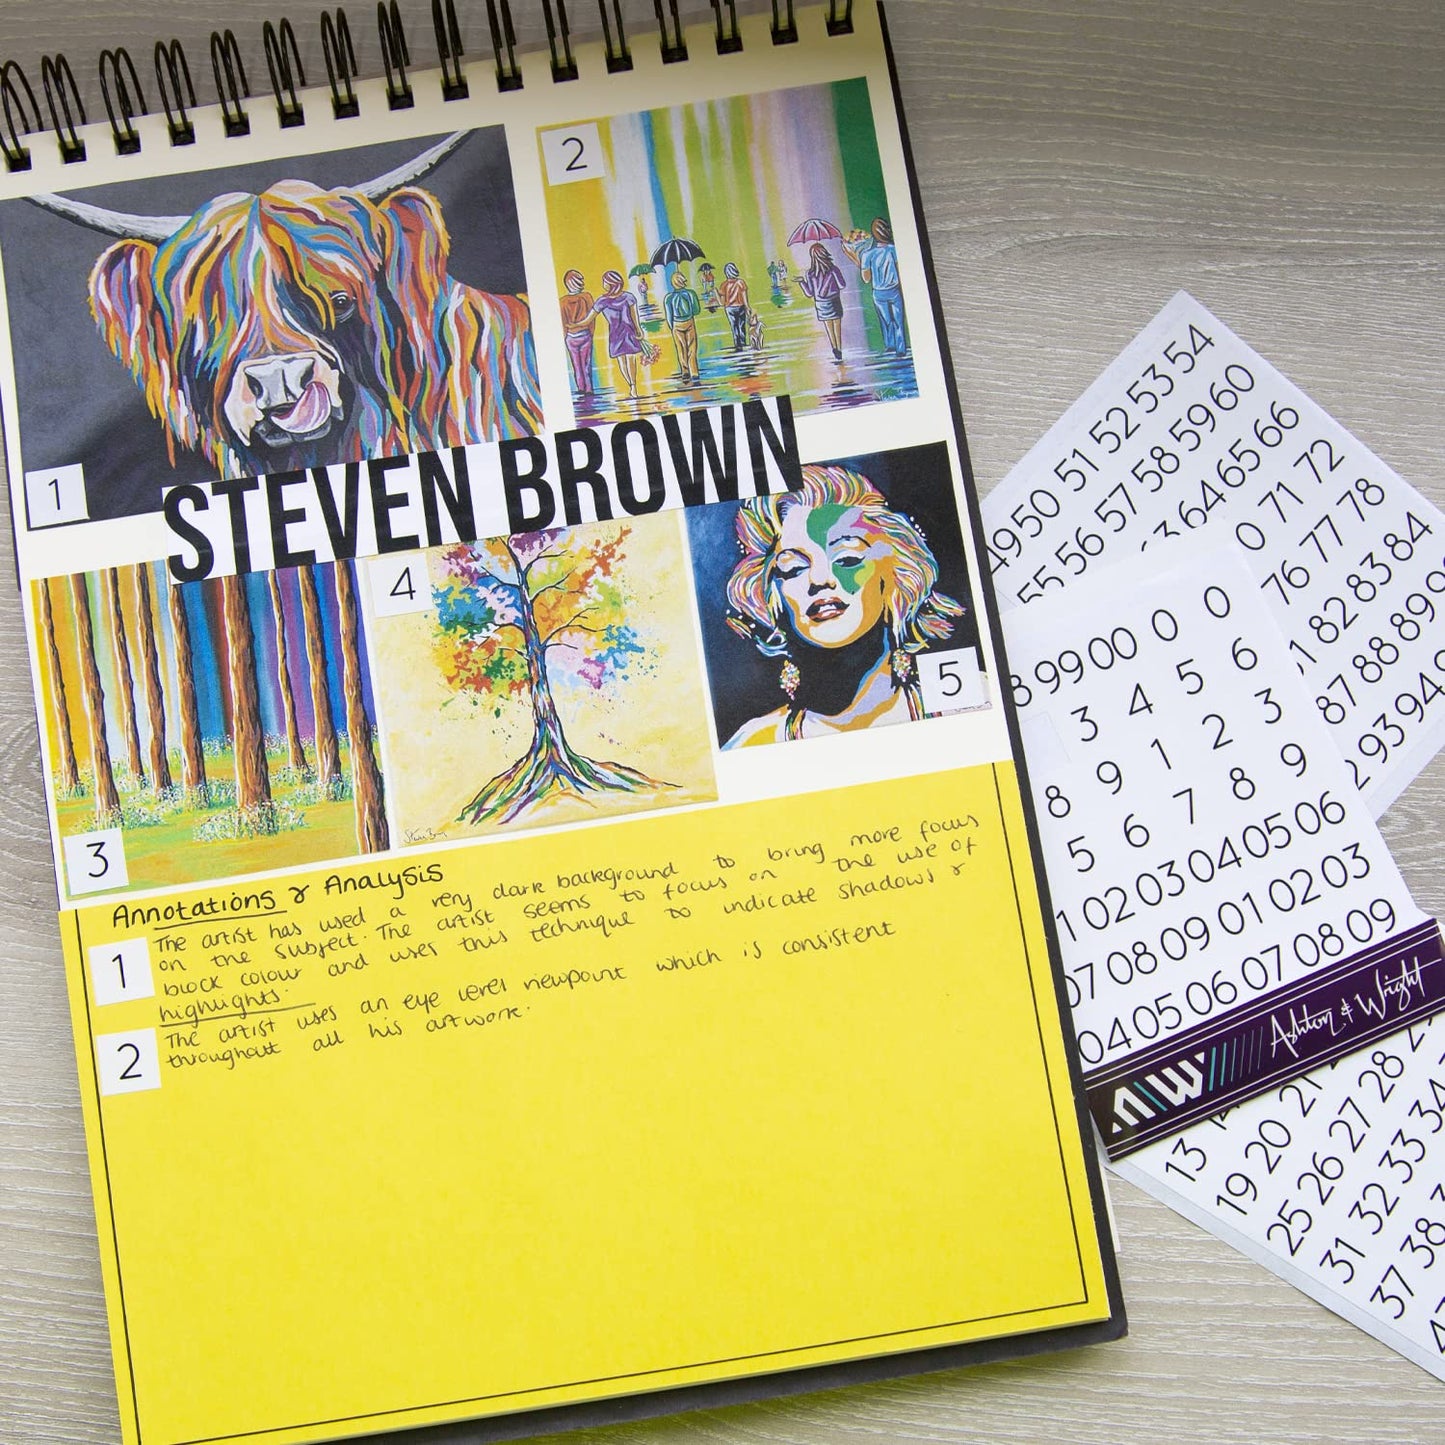 1
2
STEVEN BROWN
3
4
5
Annotations & Analysis
1
The artist has used a very dark background to bring more focus
on the subject. The artist seems to focus on the use of
block colour and uses this technique to indicate shadows &
highlights.
2
The artist uses an eye level viewpoint which is consistent
throughout all his artwork.
49 50 51 52 53 54
55 56 57 58 59 60
63 64 65 66
71 72
76 77 78
82 83 84
87 88 89
92 93 94
8 99 00 0 0
3 4 5 6
8 9 1 2 3
5 6 7 8 9
02 03 04 05 06
07 08 09 01 02 03
04 05 06 07 08 09
AW Ashton & Wright
13
19 20 21
25 26 27 28
31 32 33 34
37 38